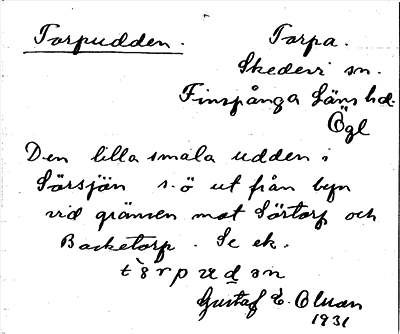 Torpudden. Torpa.
Skedevi sn.
Finspånga Läns hd.
Ögl
Den lilla smala udden i
Sörsjön s.ö ut från byn
vid gränsen mot Sörtorp och
Backetorp. Se ek.
Gustaf E. Olman
1931